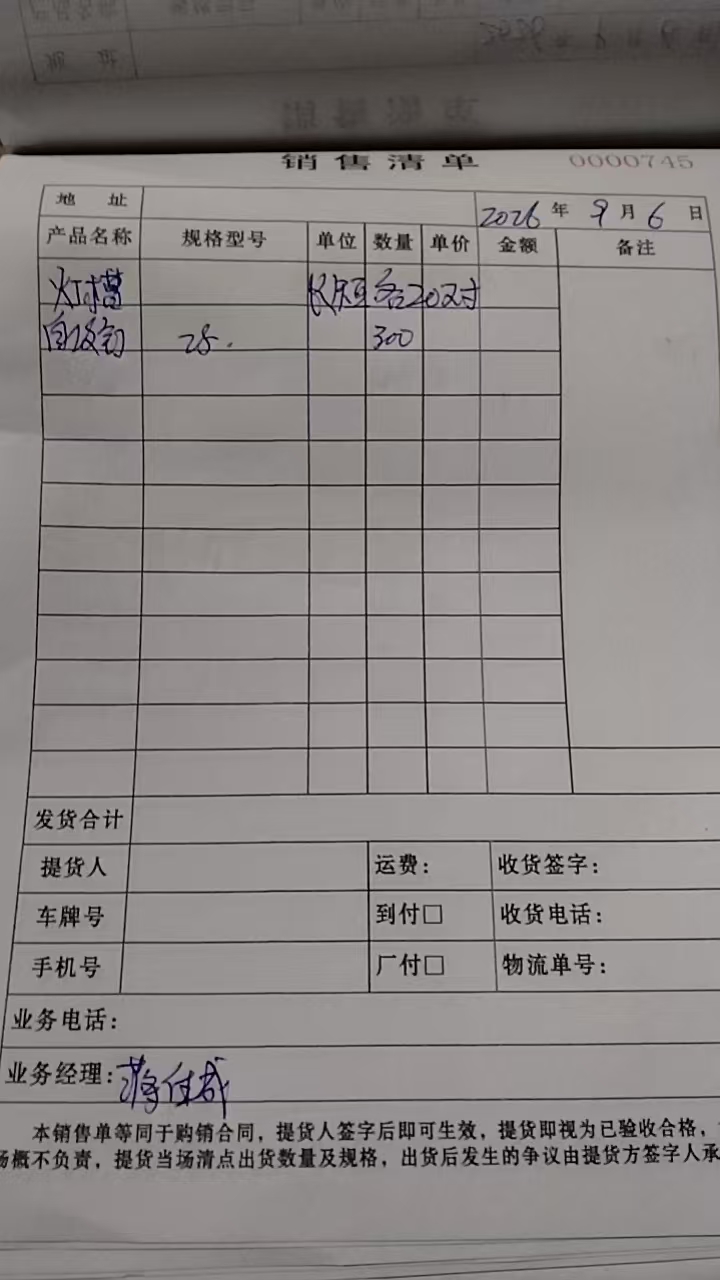 销售清单 0000745
地 址 2026年 9月 6日
产品名称 规格型号 单位 数量 单价 金额 备注
灯槽 长短各20对
自攻钉 25. 300
发货合计
提货人 运费： 收货签字：
车牌号 到付□ 收货电话：
手机号 厂付□ 物流单号：
业务电话：
业务经理：蒋佳成
本销售单等同于购销合同，提货人签字后即可生效，提货即视为已验收合格，
场概不负责，提货当场清点出货数量及规格，出货后发生的争议由提货方签字人承